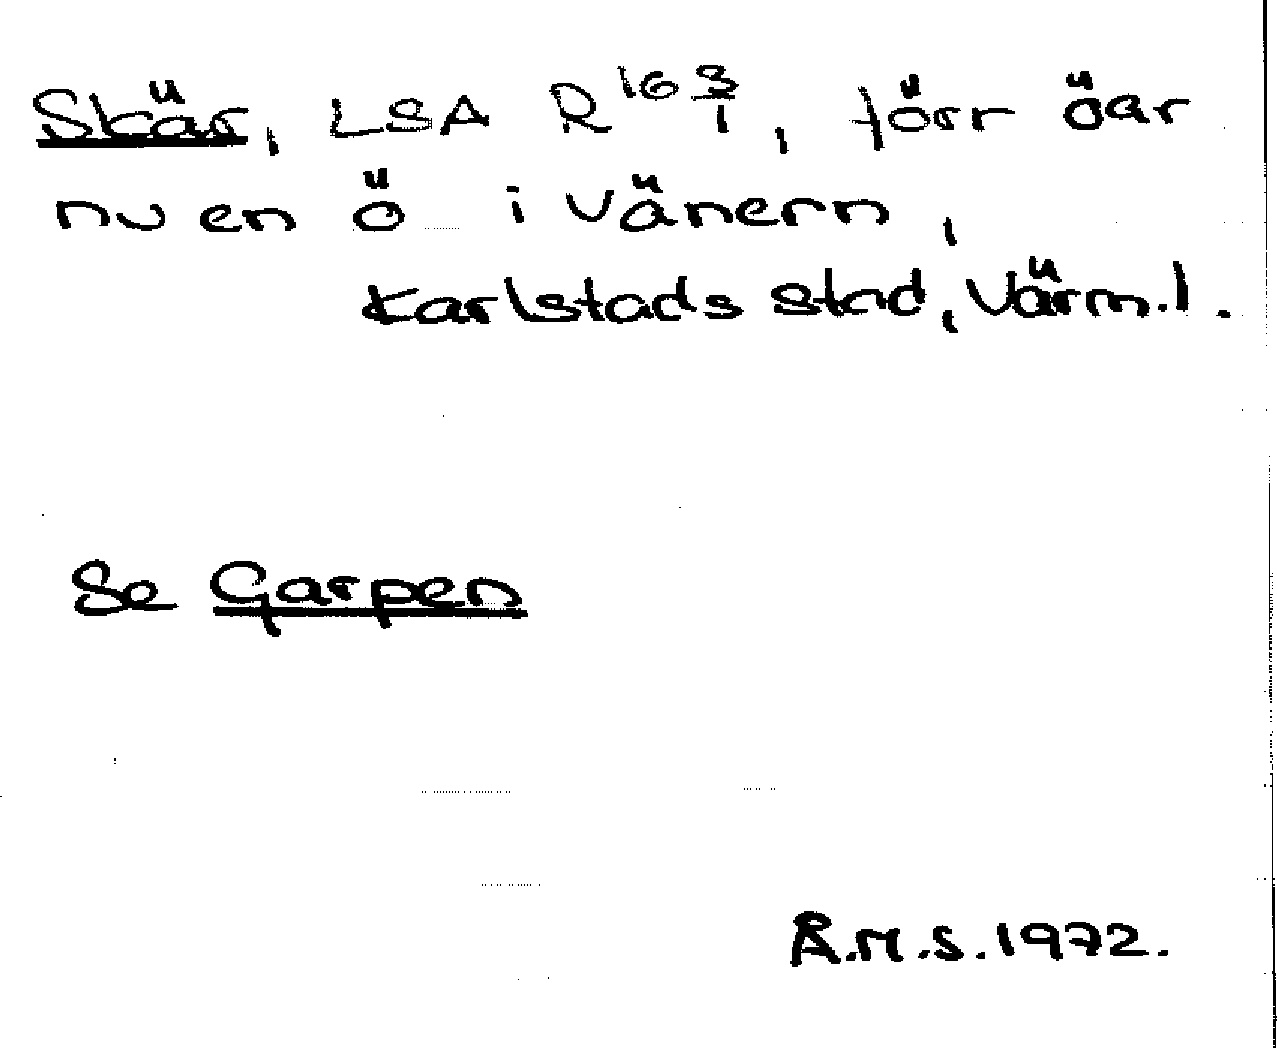 Skär, LSA R 163/1, förr öar
nu en ö i Vänern,
Karlstads stad, Värml.
Se Garpen
R.M.S. 1972.